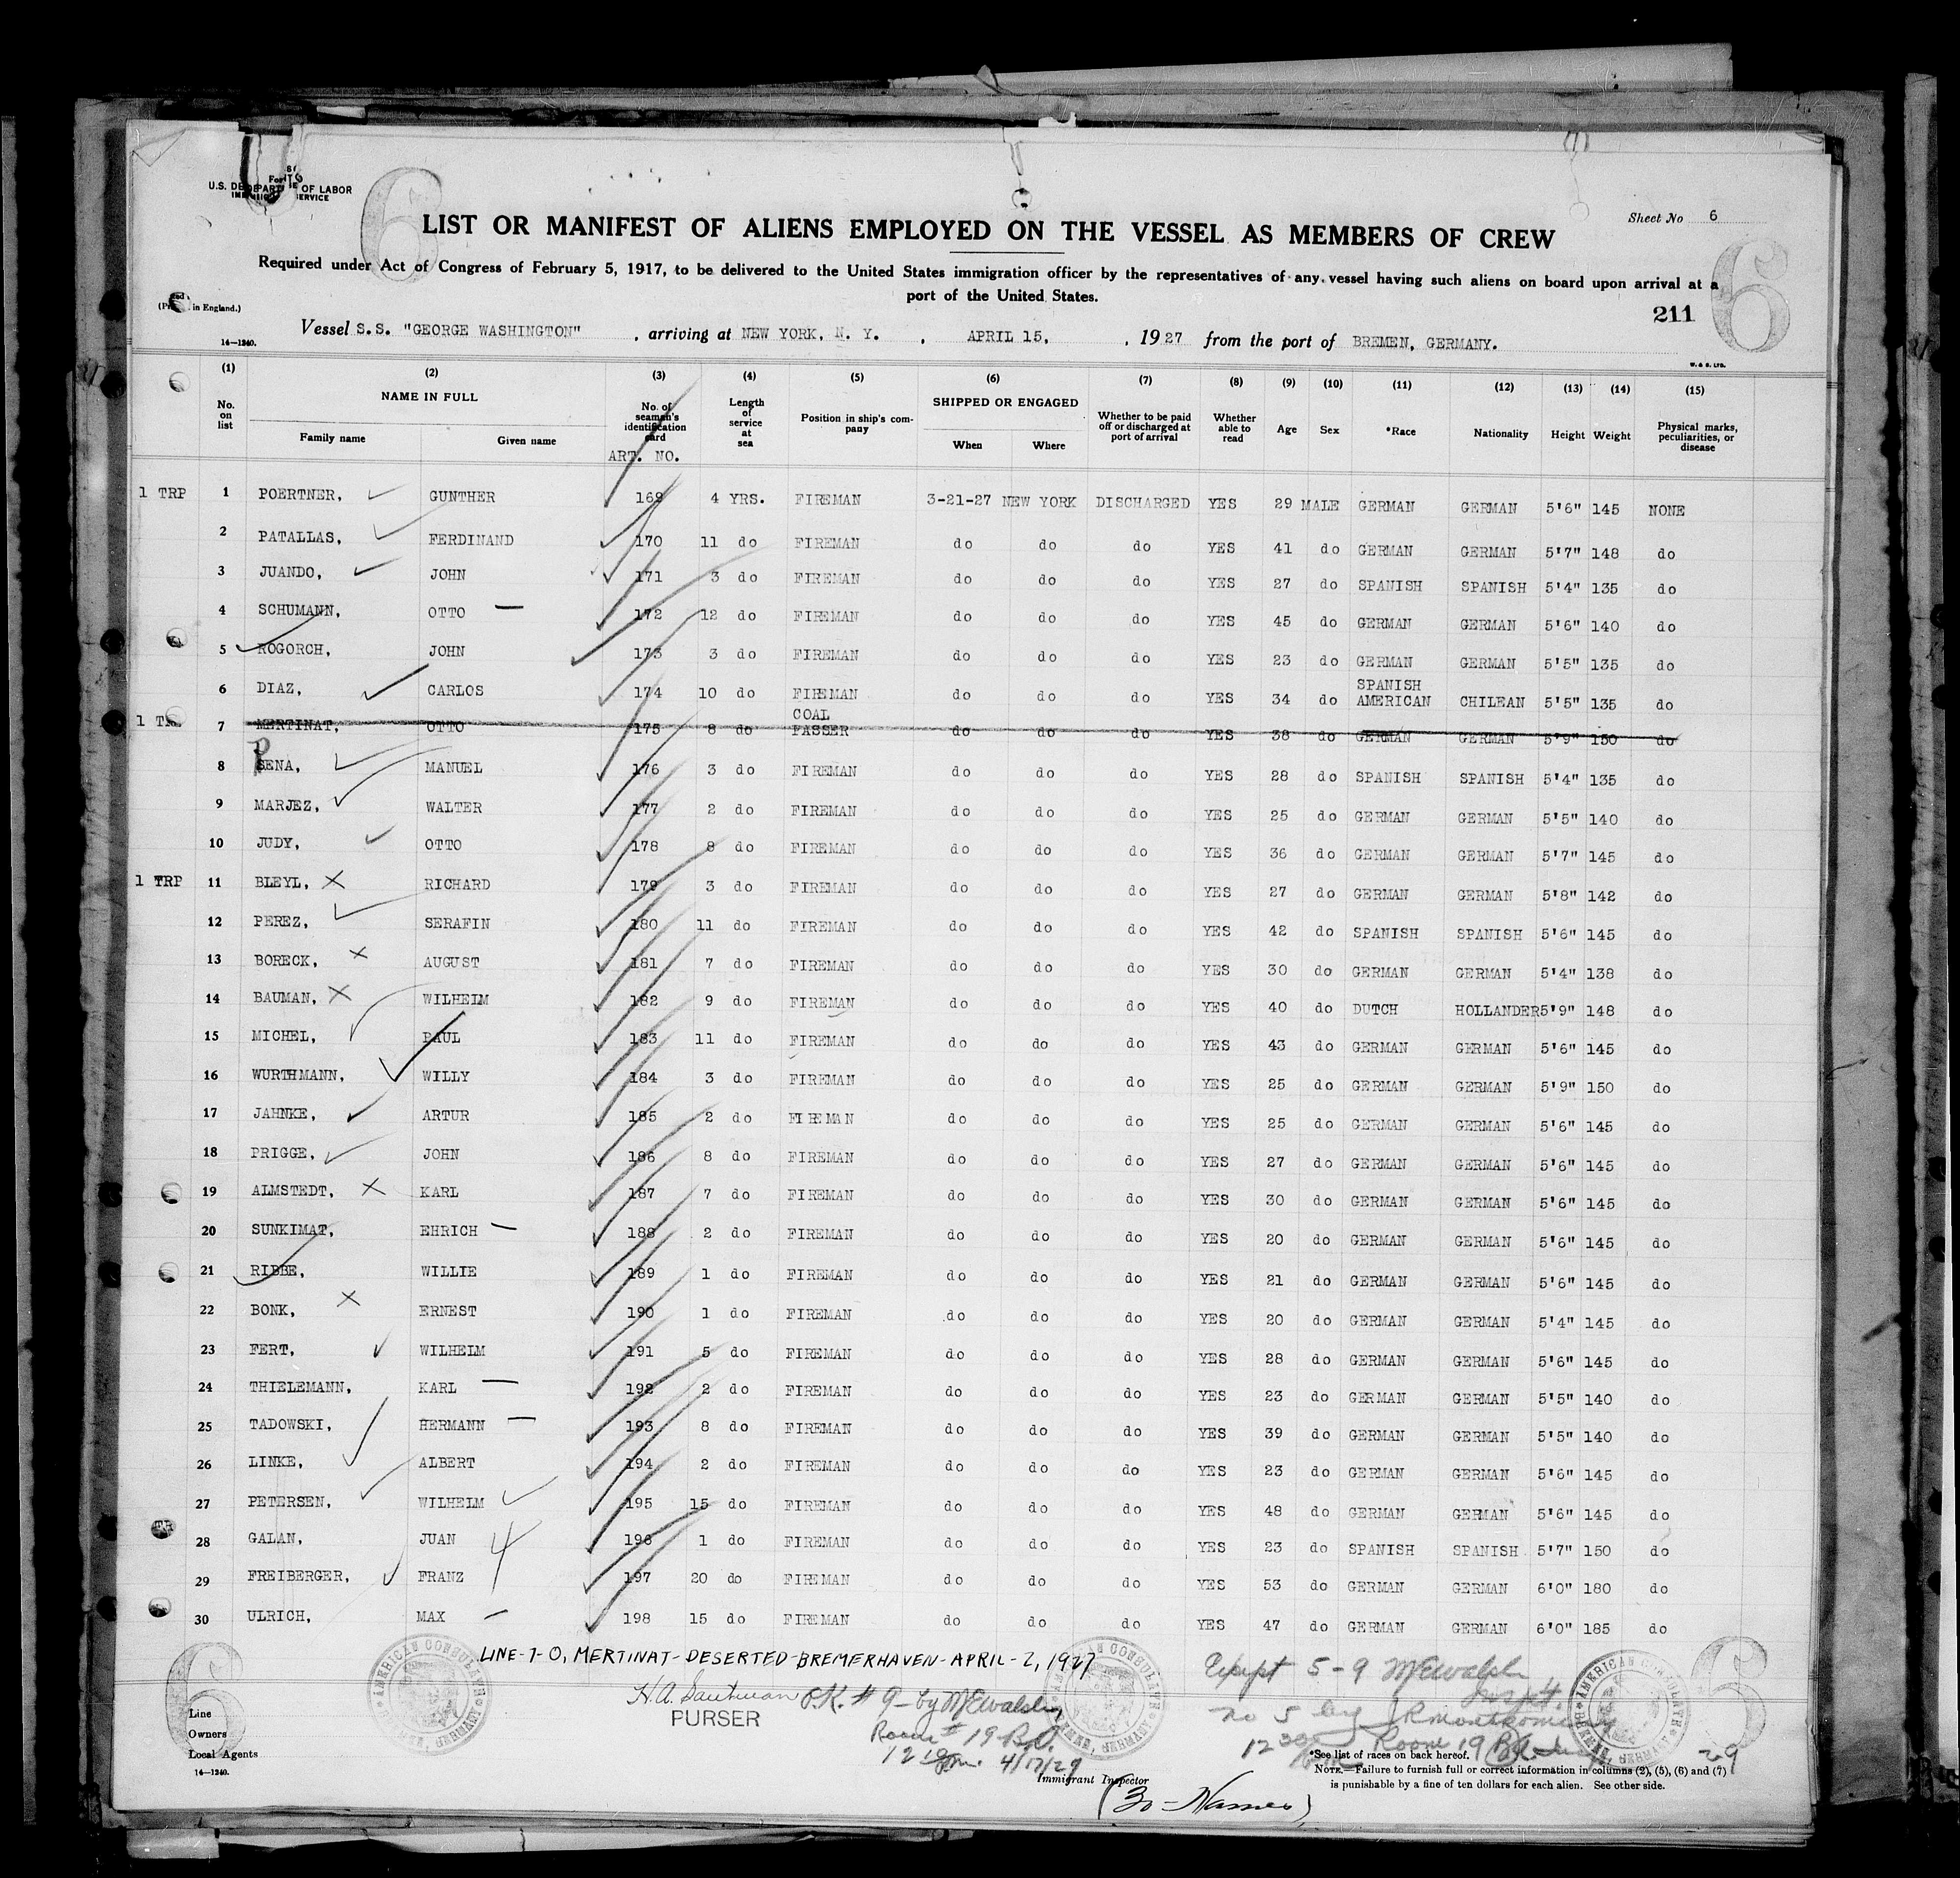 U.S. DEPARTMENT OF LABOR
IMMIGRATION SERVICE
6
LIST OR MANIFEST OF ALIENS EMPLOYED ON THE VESSEL AS MEMBERS OF CREW
Sheet No 6
Required under Act of Congress of February 5, 1917, to be delivered to the United States immigration officer by the representatives of any vessel having such aliens on board upon arrival at a
port of the United States.
6
(Printed in England.)
211
Vessel S.S. "GEORGE WASHINGTON" , arriving at NEW YORK, N. Y. , APRIL 15, , 1927 from the port of BREMEN, GERMANY.
14—1240.
W. & S. LTD.
(1) (2) (3) (4) (5) (6) (7) (8) (9) (10) (11) (12) (13) (14) (15)
No. on list NAME IN FULL Family name Given name No. of seaman's identification card ART. NO. Length of service at sea Position in ship's company SHIPPED OR ENGAGED When Where Whether to be paid off or discharged at port of arrival Whether able to read Age Sex *Race Nationality Height Weight Physical marks, peculiarities, or disease
1 TRP 1 POERTNER, GUNTHER 169 4 YRS. FIREMAN 3-21-27 NEW YORK DISCHARGED YES 29 MALE GERMAN GERMAN 5'6" 145 NONE
2 PATALLAS, FERDINAND 170 11 do FIREMAN do do do YES 41 do GERMAN GERMAN 5'7" 148 do
3 JUANDO, JOHN 171 3 do FIREMAN do do do YES 27 do SPANISH SPANISH 5'4" 135 do
4 SCHUMANN, OTTO 172 12 do FIREMAN do do do YES 45 do GERMAN GERMAN 5'6" 140 do
5 ROGORCH, JOHN 173 3 do FIREMAN do do do YES 23 do GERMAN GERMAN 5'5" 135 do
6 DIAZ, CARLOS 174 10 do FIREMAN do do do YES 34 do SPANISH AMERICAN CHILEAN 5'5" 135 do
1 7 MERTINAT, OTTO 175 8 do COAL PASSER do do do YES 38 do GERMAN GERMAN 5'9" 150 do
8 PENA, MANUEL 176 3 do FIREMAN do do do YES 28 do SPANISH SPANISH 5'4" 135 do
9 MARJEZ, WALTER 177 2 do FIREMAN do do do YES 25 do GERMAN GERMAN 5'5" 140 do
10 JUDY, OTTO 178 8 do FIREMAN do do do YES 36 do GERMAN GERMAN 5'7" 145 do
1 TRP 11 BLEYL, RICHARD 179 3 do FIREMAN do do do YES 27 do GERMAN GERMAN 5'8" 142 do
12 PEREZ, SERAFIN 180 11 do FIREMAN do do do YES 42 do SPANISH SPANISH 5'6" 145 do
13 BORECK, AUGUST 181 7 do FIREMAN do do do YES 30 do GERMAN GERMAN 5'4" 138 do
14 BAUMAN, WILHELM 182 9 do FIREMAN do do do YES 40 do DUTCH HOLLANDER 5'9" 148 do
15 MICHEL, PAUL 183 11 do FIREMAN do do do YES 43 do GERMAN GERMAN 5'6" 145 do
16 WURTHMANN, WILLY 184 3 do FIREMAN do do do YES 25 do GERMAN GERMAN 5'9" 150 do
17 JAHNKE, ARTUR 185 2 do FIREMAN do do do YES 25 do GERMAN GERMAN 5'6" 145 do
18 PRIGGE, JOHN 186 8 do FIREMAN do do do YES 27 do GERMAN GERMAN 5'6" 145 do
19 ALMSTEDT, KARL 187 7 do FIREMAN do do do YES 30 do GERMAN GERMAN 5'6" 145 do
20 SUNKIMAT, EHRICH 188 2 do FIREMAN do do do YES 20 do GERMAN GERMAN 5'6" 145 do
21 RIBBE, WILLIE 189 1 do FIREMAN do do do YES 21 do GERMAN GERMAN 5'6" 145 do
22 BONK, ERNEST 190 1 do FIREMAN do do do YES 20 do GERMAN GERMAN 5'4" 145 do
23 FERT, WILHELM 191 5 do FIREMAN do do do YES 28 do GERMAN GERMAN 5'6" 145 do
24 THIELEMANN, KARL 192 2 do FIREMAN do do do YES 23 do GERMAN GERMAN 5'5" 140 do
25 TADOWSKI, HERMANN 193 8 do FIREMAN do do do YES 39 do GERMAN GERMAN 5'5" 140 do
26 LINKE, ALBERT 194 2 do FIREMAN do do do YES 23 do GERMAN GERMAN 5'6" 145 do
27 PETERSEN, WILHELM 195 15 do FIREMAN do do do YES 48 do GERMAN GERMAN 5'6" 145 do
28 GALAN, JUAN 4 196 1 do FIREMAN do do do YES 23 do SPANISH SPANISH 5'7" 150 do
29 FREIBERGER, FRANZ 197 20 do FIREMAN do do do YES 53 do GERMAN GERMAN 6'0" 180 do
30 ULRICH, MAX 198 15 do FIREMAN do do do YES 47 do GERMAN GERMAN 6'0" 185 do
LINE-7-O, MERTINAT-DESERTED-BREMERHAVEN-APRIL-2, 1927
Except 5-9 McEwalsh
O.K. # 9 by McEwalsh
PURSER
no 5 by J R Montgomery
Room # 19 B.O.
Room 19
4/17/29
29
6
6
Line
Owners
Local Agents
14—1240.
Immigrant Inspector
*See list of races on back hereof.
NOTE.—Failure to furnish full or correct information in columns (2), (5), (6) and (7)
is punishable by a fine of ten dollars for each alien. See other side.
(30 - Names)